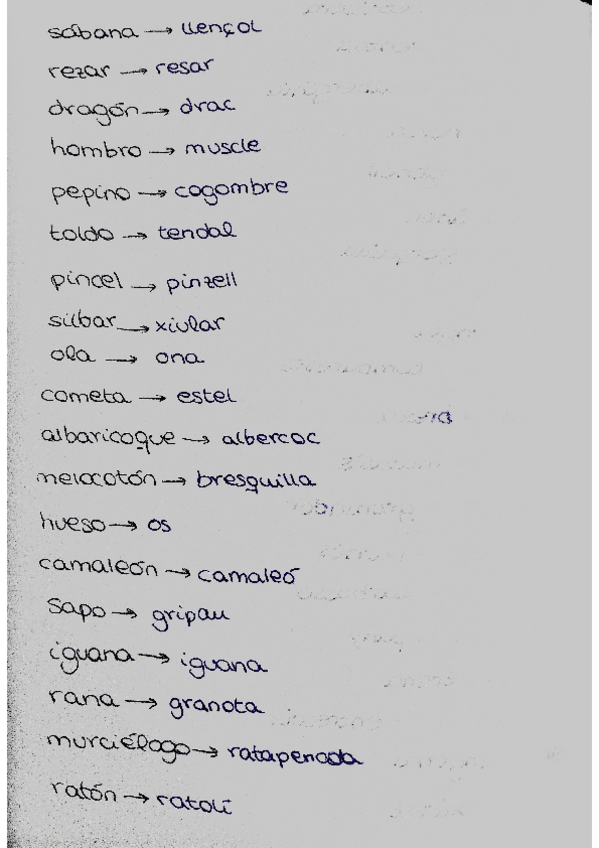 sábana → llençol
rezar → resar
dragón → drac
hombro → muscle
pepino → cogombre
toldo → tendal
pincel → pinzell
silbar → xiular
ola → ona
cometa → estel
albaricoque → albercoc
melocotón → bresquilla
hueso → os
camaleón → camaleó
sapo → gripau
iguana → iguana
rana → granota
murciélago → ratapenada
ratón → ratolí